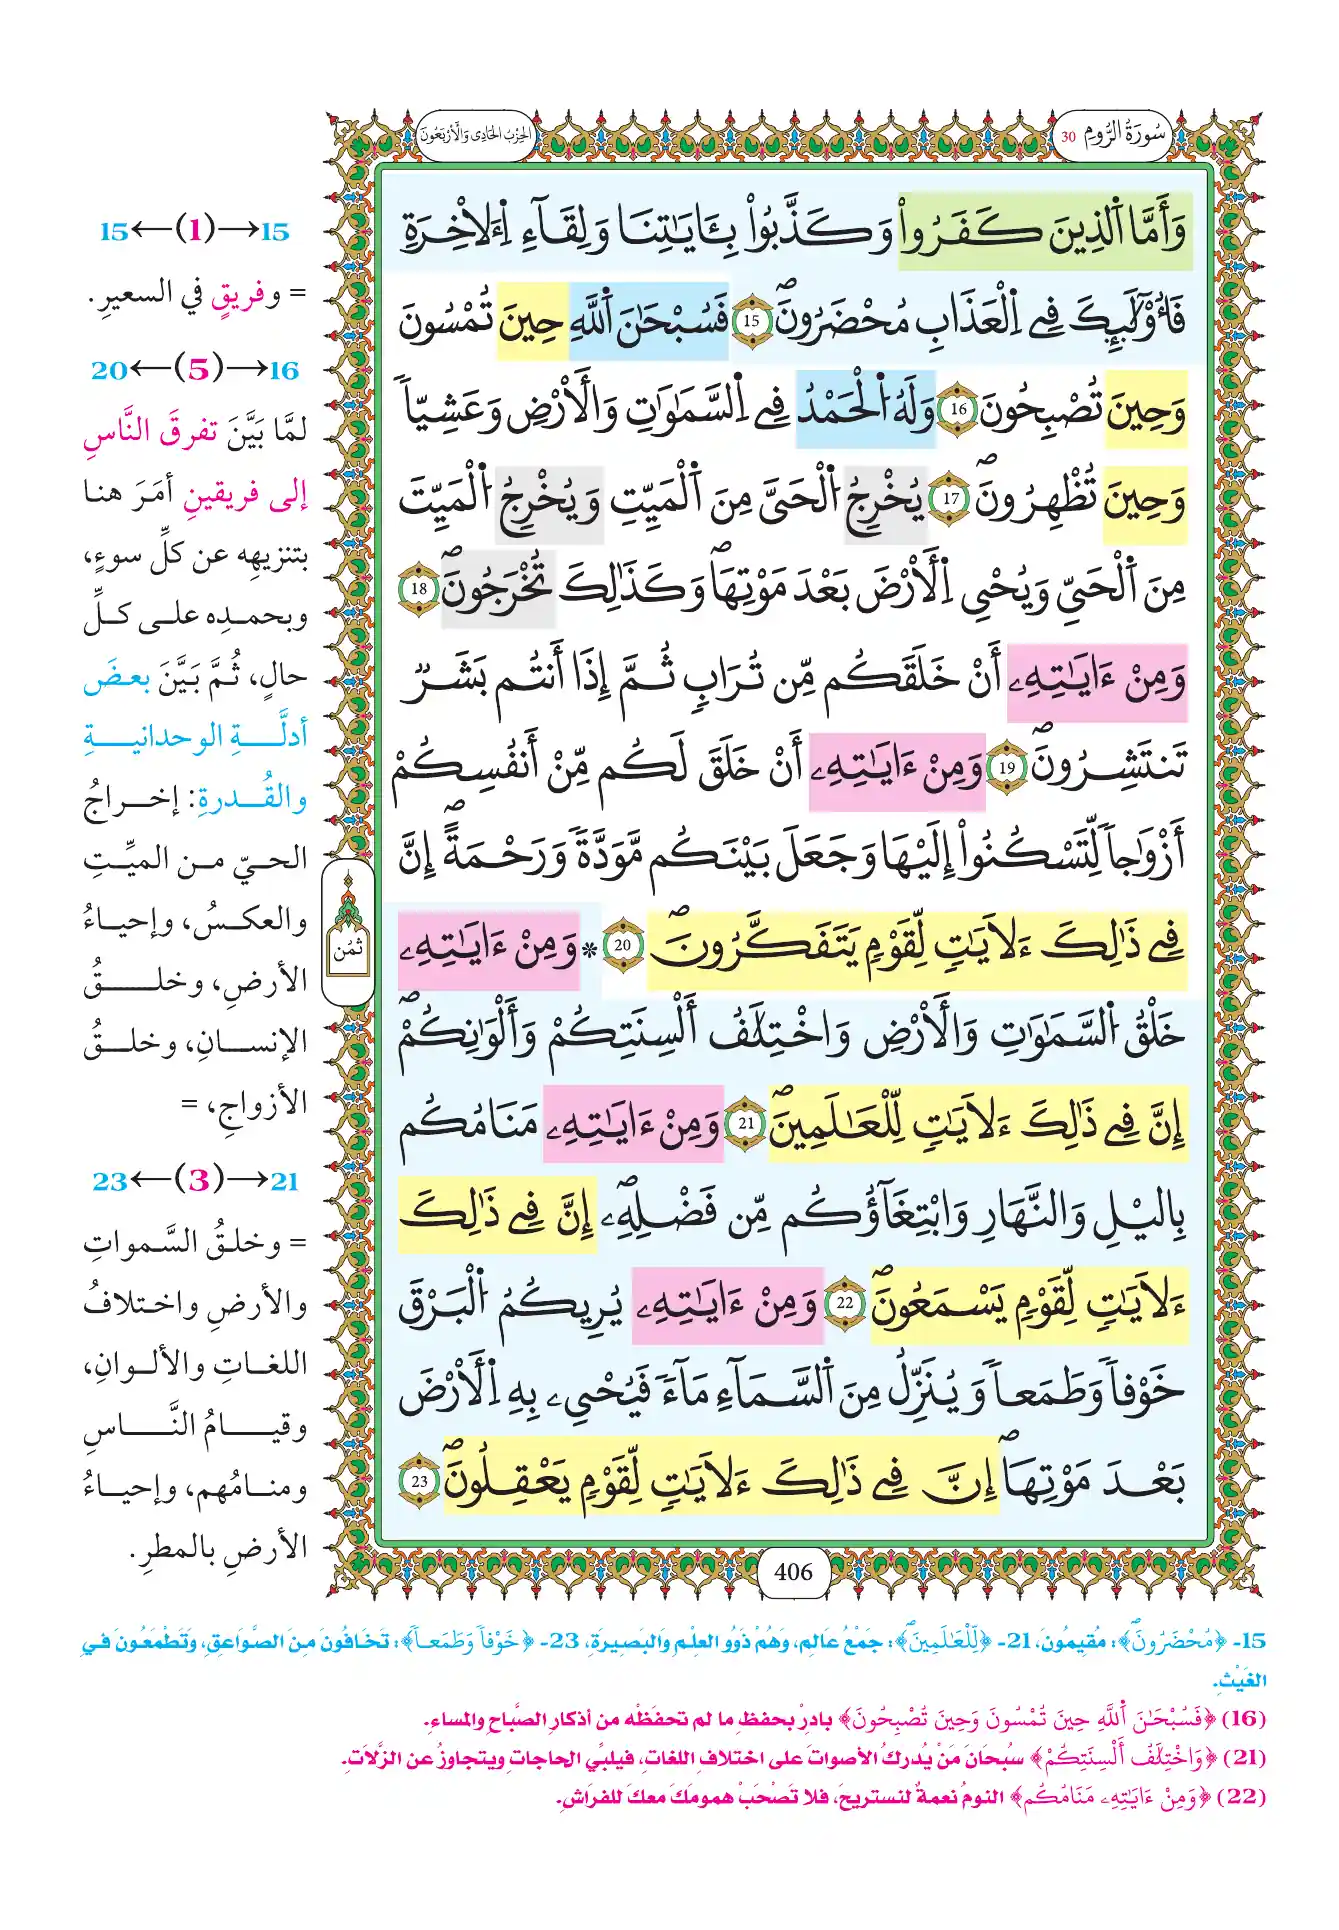 سُورَةُ الرُّومِ 30
الحِزْبُ الحَادِي وَالأَرْبَعُونَ
وَأَمَّا اَ۬لذِينَ كَفَرُواْ وَكَذَّبُواْ بِـَٔايَٰتِنَا وَلِقَآءِ اِ۬لَاخِرَةِ
فَأُوْلَٰٓئِكَ فِے اِ۬لْعَذَابِ مُحْضَرُونَۖ 15 فَسُبْحَٰنَ اَ۬للَّهِ حِينَ تُمْسُونَ
وَحِينَ تُصْبِحُونَ 16 وَلَهُ اُ۬لْحَمْدُ فِے اِ۬لسَّمَٰوَٰتِ وَالْأَرْضِ وَعَشِيّاٗ
وَحِينَ تُظْهِرُونَۖ 17 يُخْرِجُ اُ۬لْحَيَّ مِنَ اَ۬لْمَيِّتِ وَيُخْرِجُ اُ۬لْمَيِّتَ
مِنَ اَ۬لْحَيِّ وَيُحْيِ اِ۬لْأَرْضَ بَعْدَ مَوْتِهَاۖ وَكَذَٰلِكَ تُخْرَجُونَۖ 18
وَمِنْ ءَايَٰتِهِۦ أَنْ خَلَقَكُم مِّن تُرَابٖ ثُمَّ إِذَا أَنتُم بَشَرٞ
تَنتَشِرُونَۖ 19 وَمِنْ ءَايَٰتِهِۦ أَنْ خَلَقَ لَكُم مِّنْ أَنفُسِكُمْ
أَزْوَٰجاٗ لِّتَسْكُنُواْ إِلَيْهَا وَجَعَلَ بَيْنَكُم مَّوَدَّةٗ وَرَحْمَةًۖ إِنَّ
فِے ذَٰلِكَ ءَلَايَٰتٖ لِّقَوْمٖ يَتَفَكَّرُونَۖ 20 * وَمِنْ ءَايَٰتِهِۦ
خَلْقُ اُ۬لسَّمَٰوَٰتِ وَالْأَرْضِ وَاخْتِلَٰفُ أَلْسِنَتِكُمْ وَأَلْوَٰنِكُمْۖ
إِنَّ فِے ذَٰلِكَ ءَلَايَٰتٖ لِّلْعَٰلَمِينَۖ 21 وَمِنْ ءَايَٰتِهِۦ مَنَامُكُم
بِاليْلِ وَالنَّهَارِ وَابْتِغَآؤُكُم مِّن فَضْلِهِۦۖ إِنَّ فِے ذَٰلِكَ
ءَلَايَٰتٖ لِّقَوْمٖ يَسْمَعُونَۖ 22 وَمِنْ ءَايَٰتِهِۦ يُرِيكُمُ اُ۬لْبَرْقَ
خَوْفاٗ وَطَمَعاٗ وَيُنَزِّلُ مِنَ اَ۬لسَّمَآءِ مَآءٗ فَيُحْيِۦ بِهِ اِ۬لْأَرْضَ
بَعْدَ مَوْتِهَاۖ إِنَّ فِے ذَٰلِكَ ءَلَايَٰتٖ لِّقَوْمٖ يَعْقِلُونَۖ 23
ثمُن
406
15←(1)→15
= وفريقٍ في السعيرِ.
20←(5)→16
لمَّا بَيَّنَ تفرقَ النَّاسِ
إلى فريقينِ أمَرَ هنا
بتنزيهِه عن كلِّ سوءٍ،
وبحمدِه على كلِّ
حالٍ، ثُمَّ بَيَّنَ بعضَ
أدلَّةِ الوحدانيةِ
والقُدرةِ: إخراجُ
الحيّ من الميِّتِ
والعكسُ، وإحياءُ
الأرضِ، وخلقُ
الإنسانِ، وخلقُ
الأزواجِ، =
23←(3)→21
= وخلقُ السَّمواتِ
والأرضِ واختلافُ
اللغاتِ والألوانِ،
وقيامُ النَّاسِ
ومنامُهم، وإحياءُ
الأرضِ بالمطرِ.
15- ﴿مُحْضَرُونَۖ﴾: مُقِيمُونَ، 21- ﴿لِلْعَٰلَمِينَۖ﴾: جَمْعُ عَالِمٍ، وَهُمْ ذَوُو العِلْمِ وَالبَصِيرَةِ، 23- ﴿خَوْفاٗ وَطَمَعاٗ﴾: تَخَافُونَ مِنَ الصَّوَاعِقِ، وَتَطْمَعُونَ فِي
الغَيْثِ.
(16) ﴿فَسُبْحَٰنَ اَ۬للَّهِ حِينَ تُمْسُونَ وَحِينَ تُصْبِحُونَ﴾ بادرْ بحفظِ ما لم تحفَظْه من أذكارِ الصَّباحِ والمساءِ.
(21) ﴿وَاخْتِلَٰفُ أَلْسِنَتِكُمْ﴾ سُبحَانَ مَنْ يُدركُ الأصواتَ على اختلافِ اللغاتِ، فيلبِّي الحاجاتِ ويتجاوزُ عن الزَّلاتِ.
(22) ﴿وَمِنْ ءَايَٰتِهِۦ مَنَامُكُم﴾ النومُ نعمةٌ لنستريحَ، فلا تَصْحَبْ همومَكَ معكَ للفراشِ.